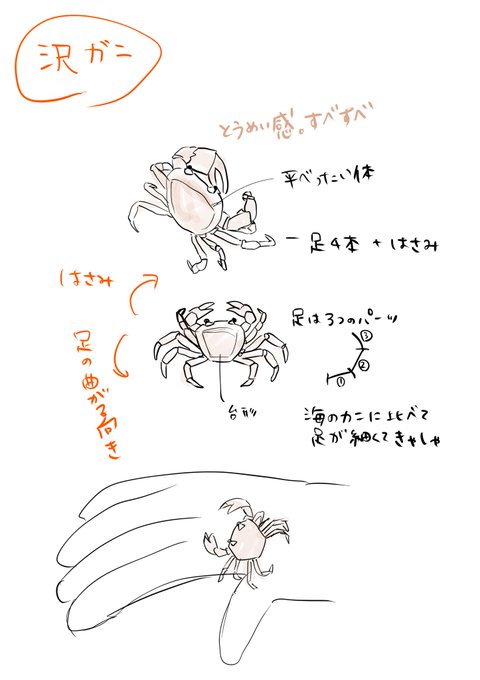 沢ガニ
とうめい感。すべすべ
平べったい体
足4本 + はさみ
はさみ
足の曲がる向き
足は3つのパーツ
③
②
①
台形
海のカニに比べて
足が細くてきゃしゃ